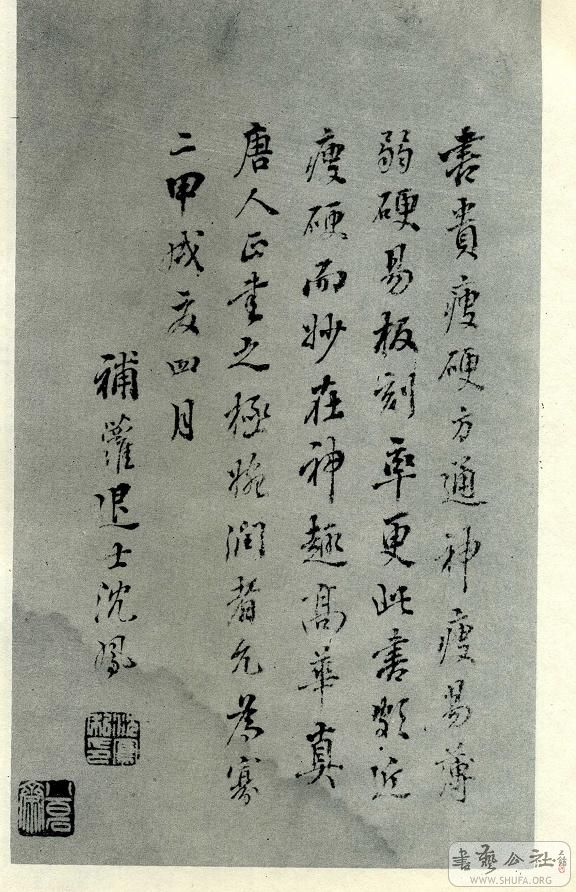 書貴瘦硬方通神瘦易薄
弱硬易板刻率更此書頗近
瘦硬而妙在神趣高華真
唐人正書之極婉潤者允為寡
二甲戌夏四月
補蘿退士沈鳳
沈鳳私印
書藝公社
WWW.SHUFA.ORG